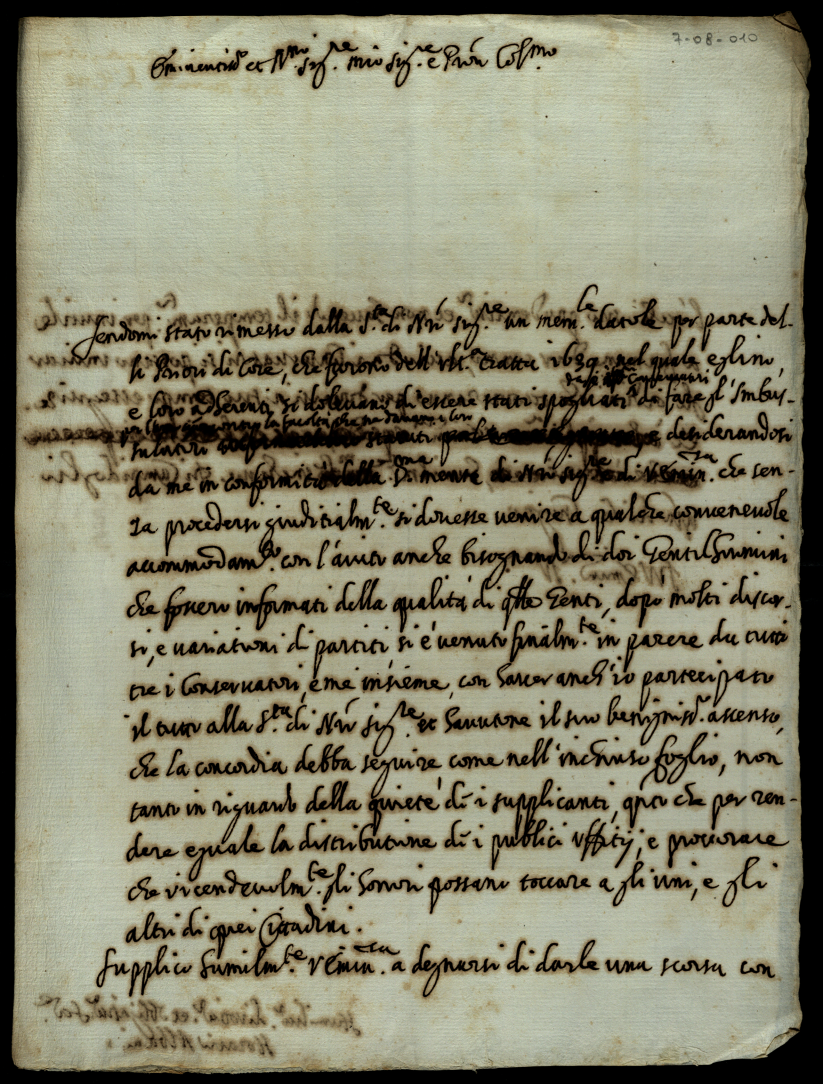 7-08-010
Eminentis.º et R.mo Sig.re mio Sig.re e Pròn Col.mo
Sendomi stato rimesso dalla S.tà di Nrò Sig.re un mem.le datole per parte del-
li Priori di Core, che furono dell'ult.ª tratta 1639. nel quale eglino,
e loro adherenti si dolevano di essere stati spogliati da fare gl'Imbus-
sulatori desiderandosi
da me in conformità della mente di Nrò Sig.re di V.Emin.za che sen-
za procedersi giuditialm.te si dovesse venire a qualche convenevole
accommodam.to con l'aiuto anche bisognando di doi Gentilhuomini
che fossero informati della qualità di qlle Genti, dopò molti discor-
si, e variationi di partiti si è venuto finalm.te in parere da tutti
tre i Conservatori, e me insieme, con haver anch'io partecipato
il tutto alla S.tà di Nrò Sig.re et havutone il suo benignis.º assenso,
che la concordia debba seguire come nell'inchiuso foglio, non
tanto in riguardo della quiete dè i supplicanti, qñto che per ren-
dere eguale la distributione dè i publici uffitij, e procurare
che vicendevolm.te gli honori possano toccare a gli uni, e gli
altri di quei Cittadini.
Supplico humilm.te V.Emin.za a degnarsi di darle una scorsa con